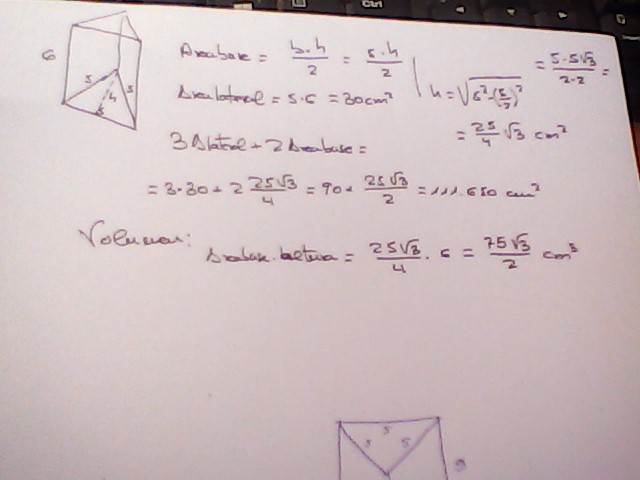 6
5 h 5
5
Areabase = b·h/2 = 5·h/2 | h = √(5²-(5/2)²) = 5·5√3/2·2 =
Arealateral = 5·6 = 30cm²
= 25/4 √3 cm²
3 Alateral + 2 Areabase =
= 3·30 + 2 25√3/4 = 90 + 25√3/2 = 111.650 cm²
Volumen:
Areabase·altura = 25√3/4 · 6 = 75√3/2 cm³
5
5 5
9